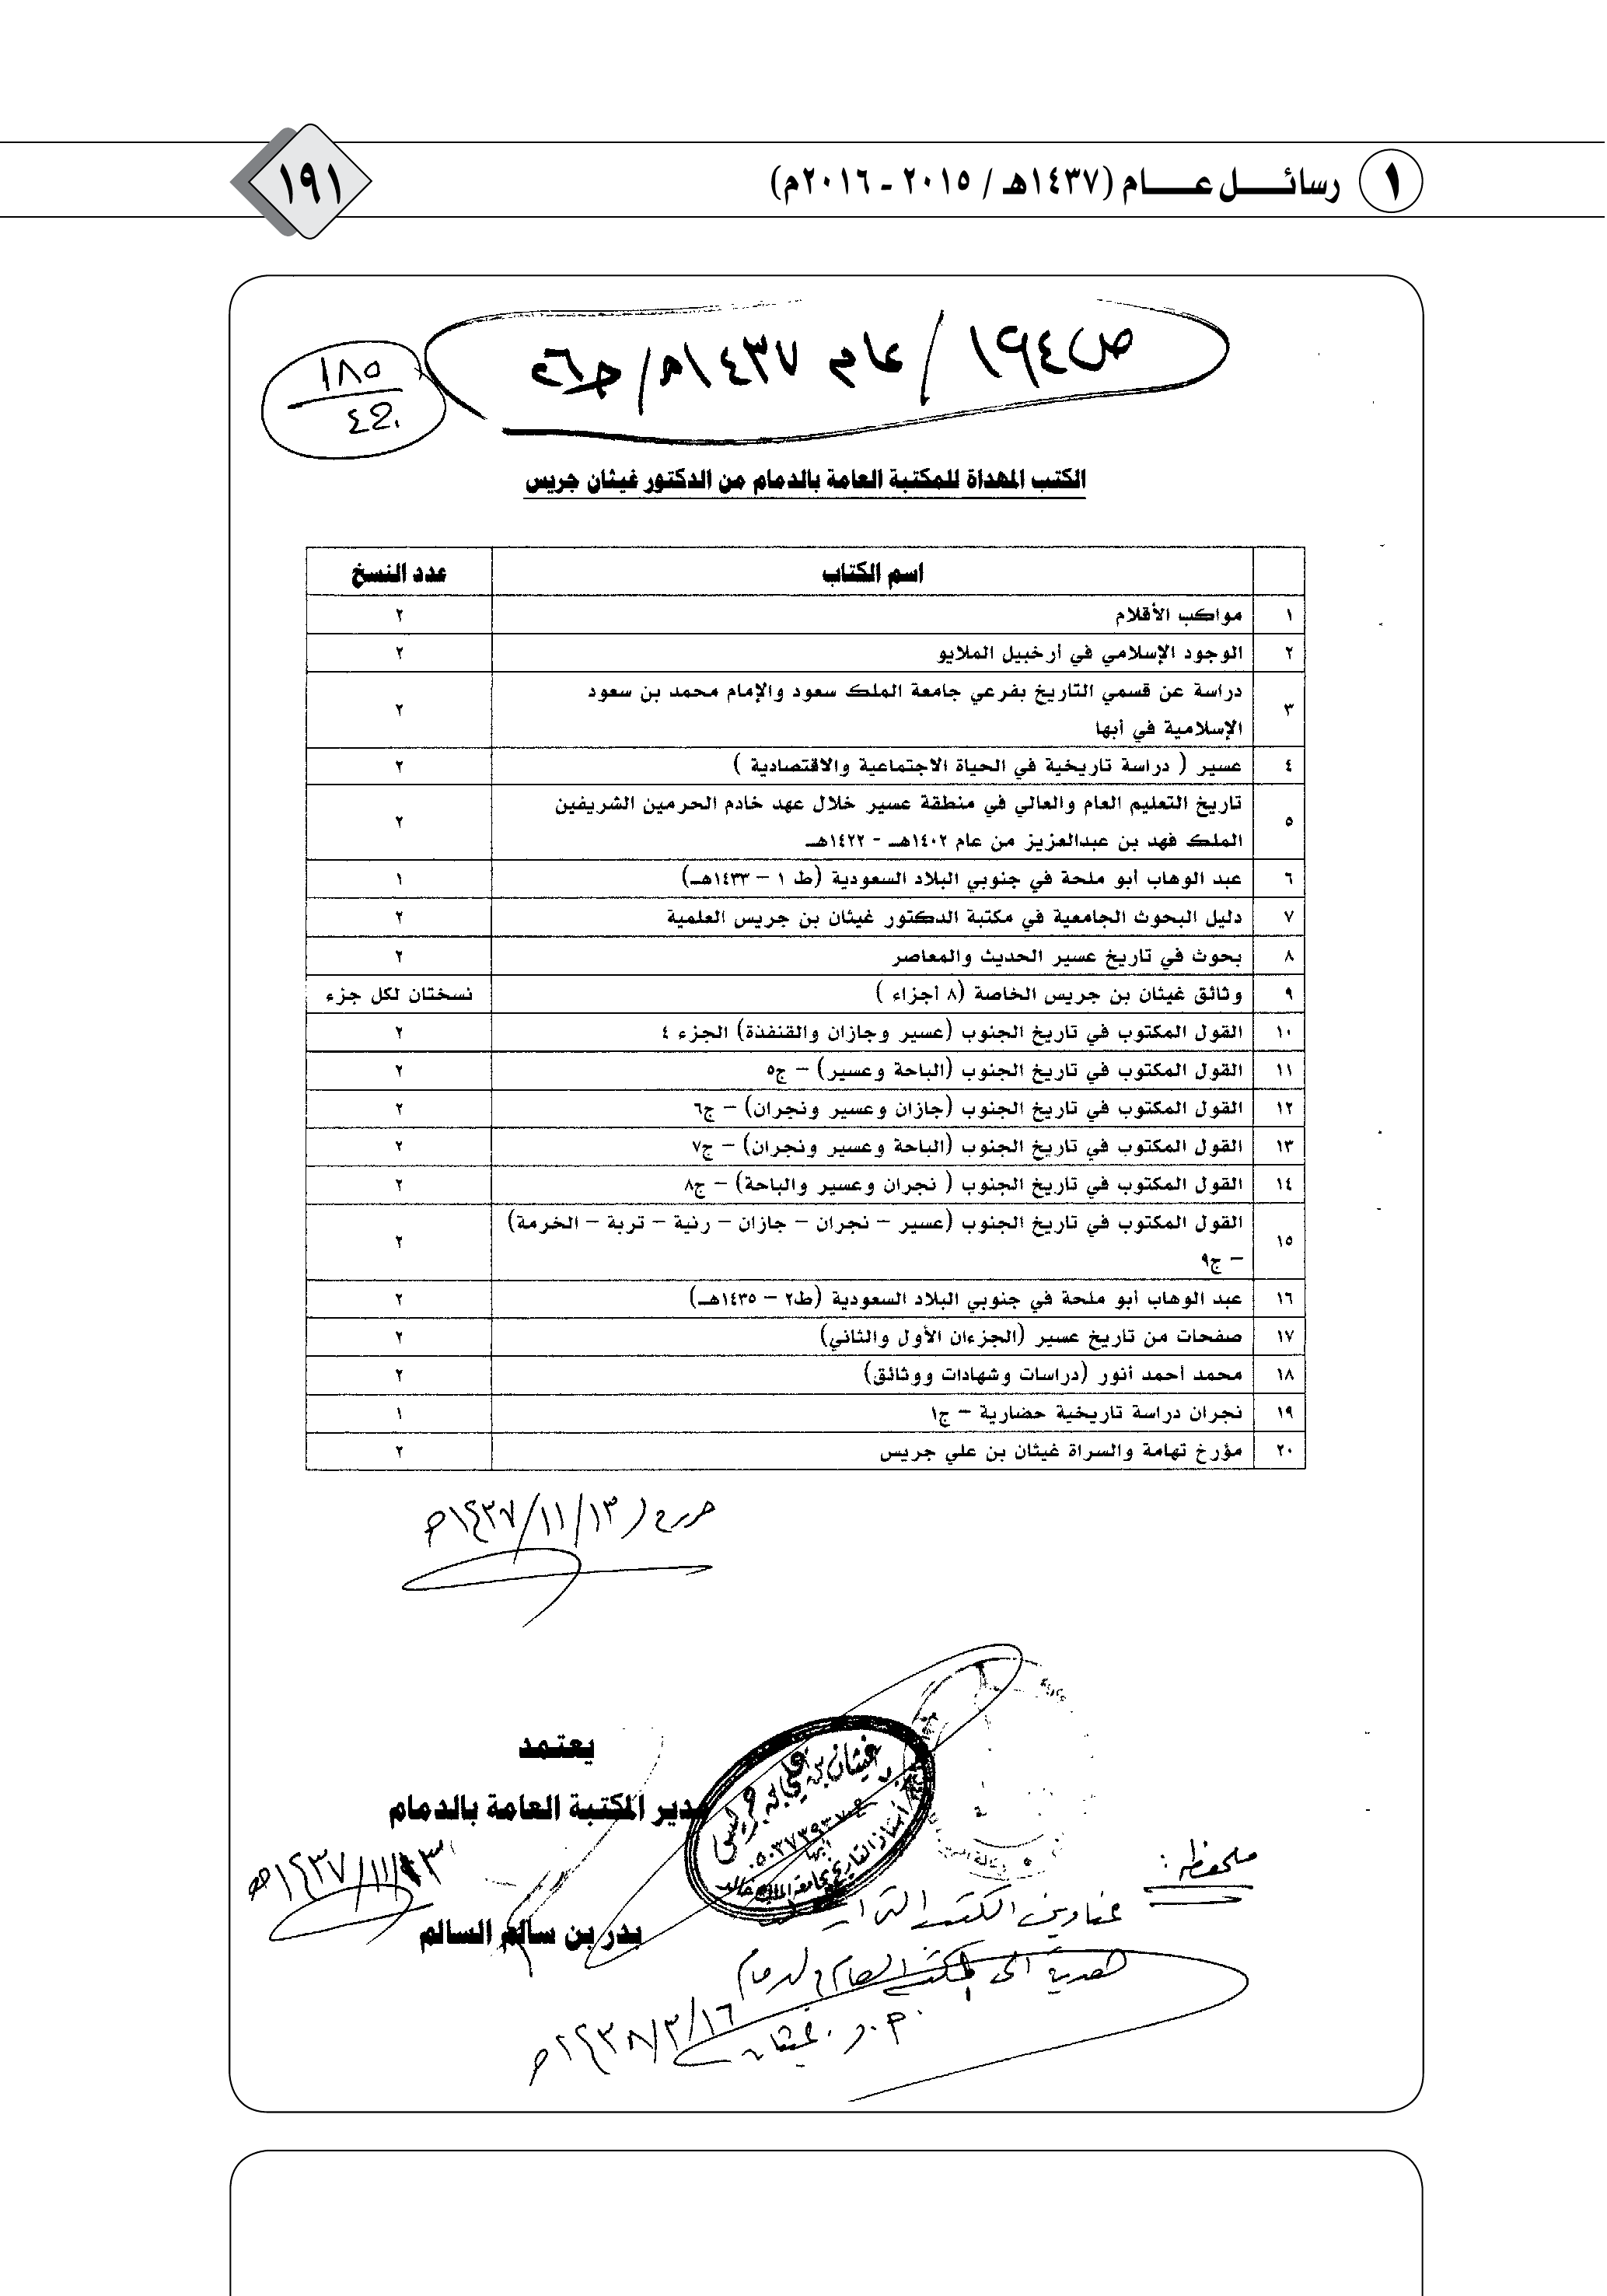 ١ رسائـــــل عـــــام (١٤٣٧هـ / ٢٠١٥ - ٢٠١٦م)
١٩١
ص١٩٤ / عام ١٤٣٧هـ /
١٨٥
الكتب المهداة للمكتبة العامة بالدمام من الدكتور غيثان جريس
اسم الكتاب عدد النسخ
١ مواكب الأقلام ٢
٢ الوجود الإسلامي في أرخبيل الملايو ٢
٣ دراسة عن قسمي التاريخ بفرعي جامعة الملك سعود والإمام محمد بن سعود
الإسلامية في أبها ٢
٤ عسير ( دراسة تاريخية في الحياة الاجتماعية والاقتصادية ) ٢
٥ تاريخ التعليم العام والعالي في منطقة عسير خلال عهد خادم الحرمين الشريفين
الملك فهد بن عبدالعزيز من عام ١٤٠٢هـ - ١٤٢٢هـ ٢
٦ عبد الوهاب أبو ملحة في جنوبي البلاد السعودية (ط ١ – ١٤٣٣هـ) ١
٧ دليل البحوث الجامعية في مكتبة الدكتور غيثان بن جريس العلمية ٢
٨ بحوث في تاريخ عسير الحديث والمعاصر ٢
٩ وثائق غيثان بن جريس الخاصة (٨ أجزاء ) نسختان لكل جزء
١٠ القول المكتوب في تاريخ الجنوب (عسير وجازان والقنفذة) الجزء ٤ ٢
١١ القول المكتوب في تاريخ الجنوب (الباحة وعسير) – ج٥ ٢
١٢ القول المكتوب في تاريخ الجنوب (جازان وعسير ونجران) – ج٦ ٢
١٣ القول المكتوب في تاريخ الجنوب (الباحة وعسير ونجران) – ج٧ ٢
١٤ القول المكتوب في تاريخ الجنوب ( نجران وعسير والباحة) – ج٨ ٢
١٥ القول المكتوب في تاريخ الجنوب (عسير – نجران – جازان – رنية – تربة – الخرمة)
– ج٩ ٢
١٦ عبد الوهاب أبو ملحة في جنوبي البلاد السعودية (ط٢ – ١٤٣٥هـ) ٢
١٧ صفحات من تاريخ عسير (الجزءان الأول والثاني) ٢
١٨ محمد أحمد أنور (دراسات وشهادات ووثائق) ٢
١٩ نجران دراسة تاريخية حضارية – ج١ ١
٢٠ مؤرخ تهامة والسراة غيثان بن علي جريس ٢
١٣/١١/١٤٣٧هـ
يعتمد
مدير المكتبة العامة بالدمام
١٣/١١/١٤٣٧هـ
بدر بن سالم السالم
غيثان بن علي بن جريس
أبها
أستاذ التاريخ بجامعة الملك خالد
ملحوظة :
عناوين الكتب
إلى المكتبة العامة
أ.د. غيثان
١٦/٣/١٤٣٨هـ